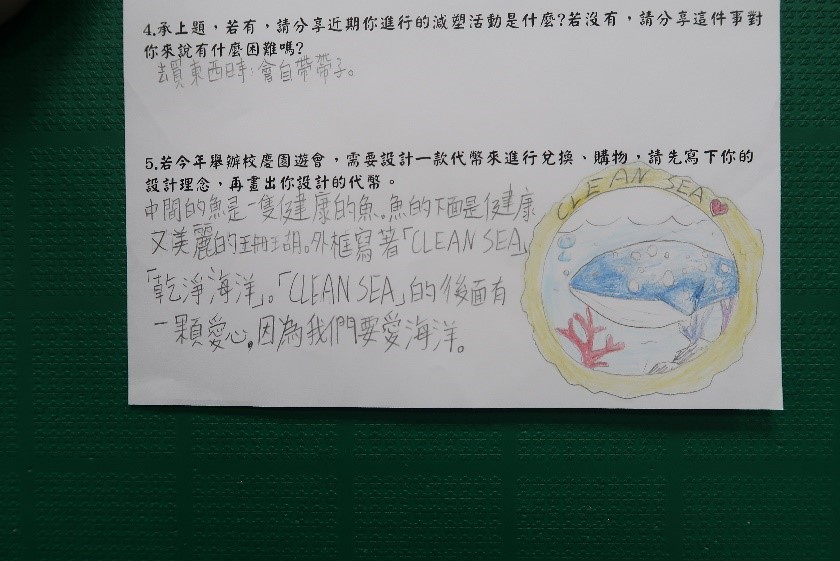 4.承上題，若有，請分享近期你進行的減塑活動是什麼?若沒有，請分享這件事對
你來說有什麼困難嗎?
去買東西時，會自帶帶子。
5.若今年舉辦校慶園遊會，需要設計一款代幣來進行兌換、購物，請先寫下你的
設計理念，再畫出你設計的代幣。
中間的魚是一隻健康的魚。魚的下面是健康
又美麗的珊瑚。外框寫著「CLEAN SEA」
「乾淨海洋」。「CLEAN SEA」的後面有
一顆愛心。因為我們要愛海洋。
CLEAN SEA